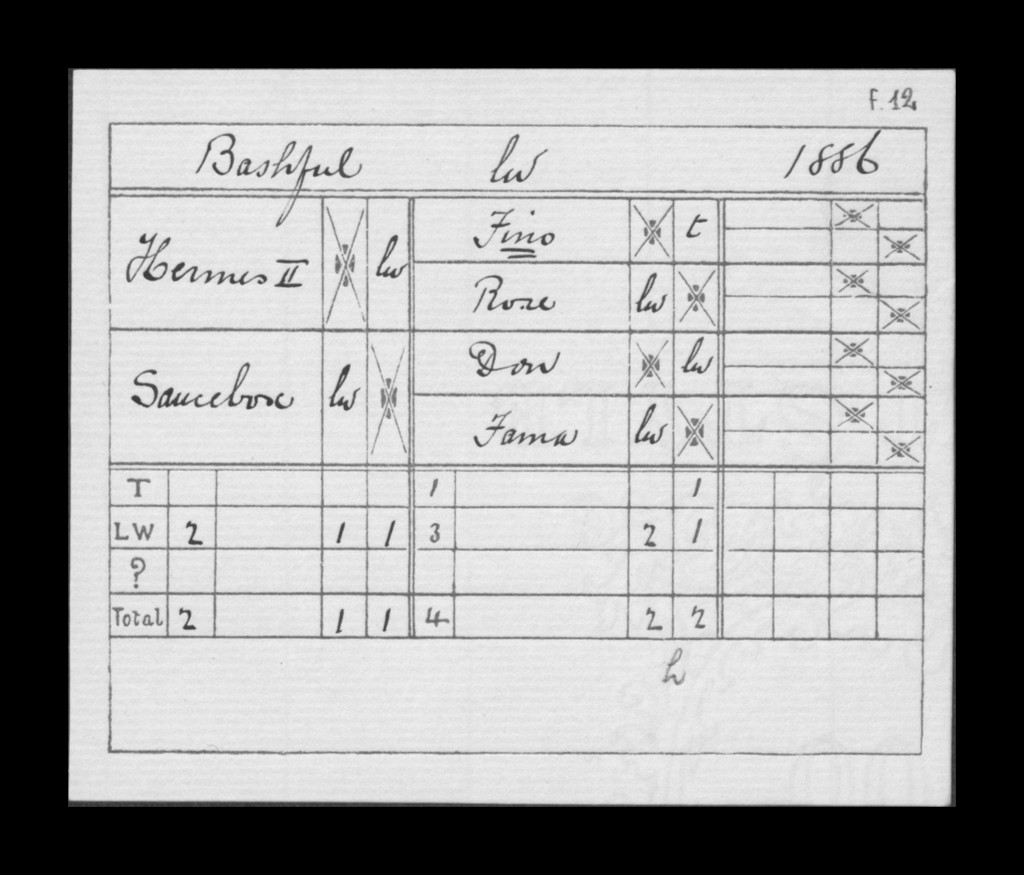 F. 12
Bashful lw 1886
Hermes II lw
Fino t
Rose lw
Saucebox lw
Don lw
Fama lw
T 1 1
LW 2 1 1 3 2 1
?
Total 2 1 1 4 2 2
h